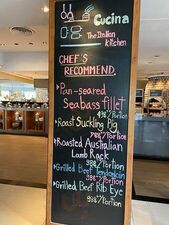 Cucina
The Italian
Kitchen
CHEF'S
RECOMMEND.
Pan-seared
Seabass fillet
/Portion
Roast Suckling Pig
/Portion
Roasted Australian
Lamb Rack
/Portion
Grilled Beef Tenderloin
/Portion
Grilled Beef Rib Eye
/Portion